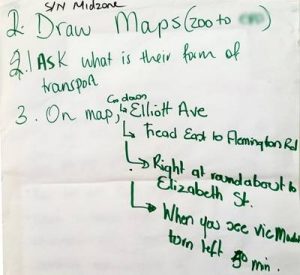 S/N Midzone
2. Draw Maps (zoo to
2.1 ASK what is their form of
transport
3. On map, Go down Elliott Ave
↳ Head East to Flemington Rd
↳ Right at roundabout to
Elizabeth St.
↳ When you see vic
turn left min.